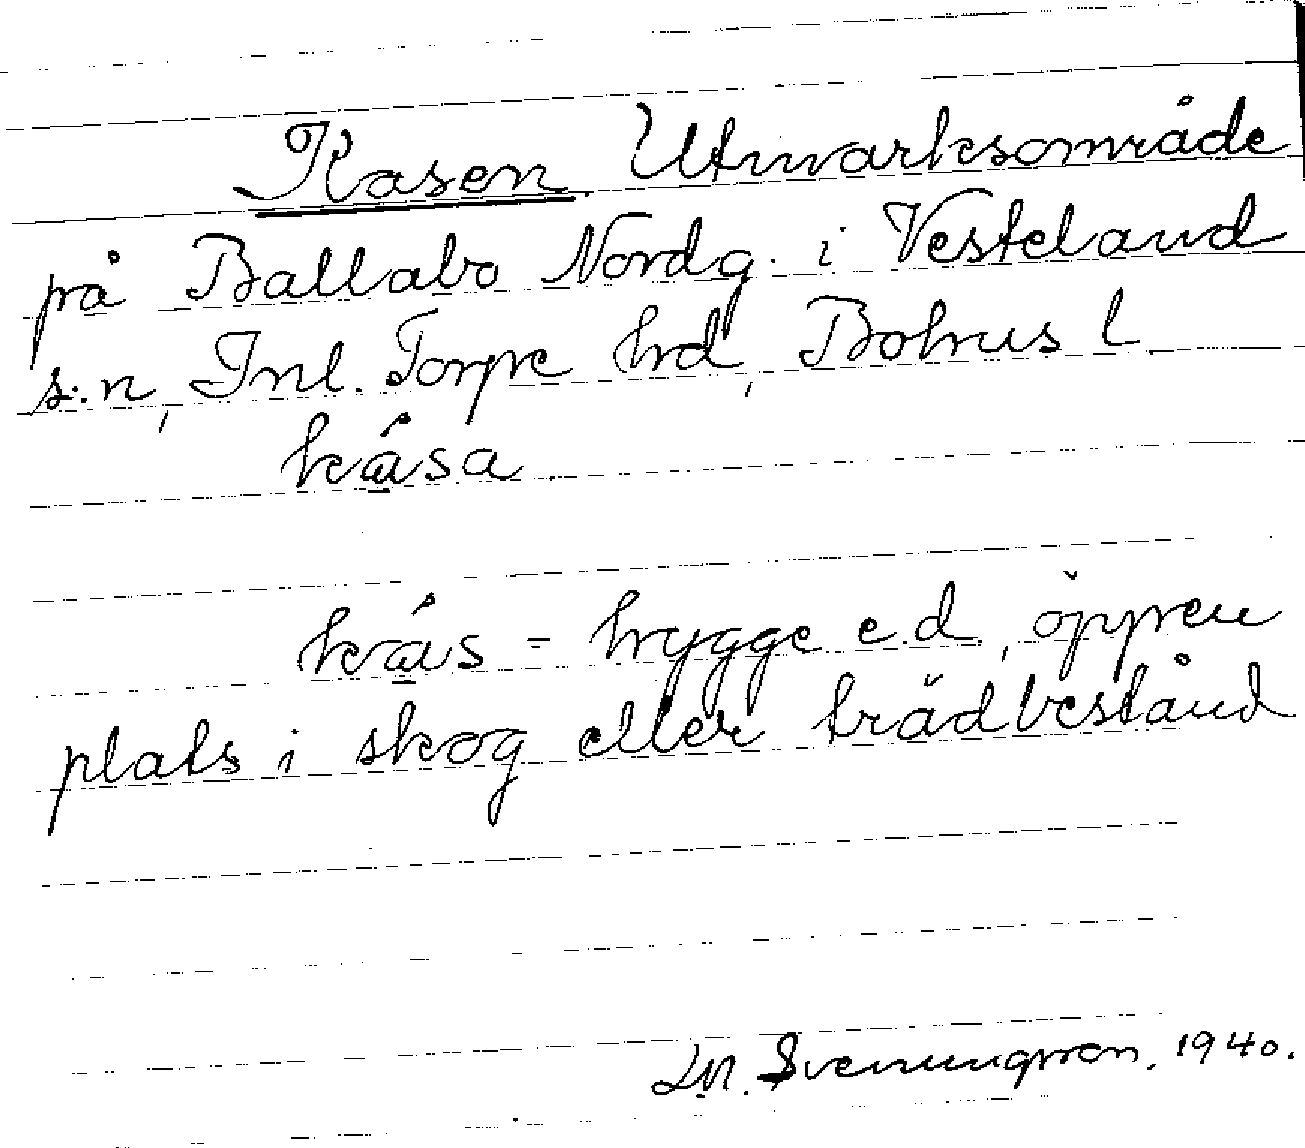 Kasen. Utmarksområde
på Ballabo Nordg. i Vesteland
s:n, Inl. Torpe hd, Bohus l.
kása
kás = hygge e.d., öppen
plats i skog eller trädbestånd
M. Svenungsson. 1940.